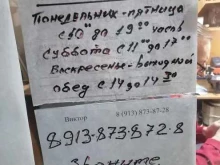 Понедельник-пятница
с 9 00 до 19 00 часов
суббота с 11 00 до 17 00
Воскресенье-выходной
обед с 14 до 14 30
Виктор 8 (913) 873-87-28
8-913-873-872-8
Звоните